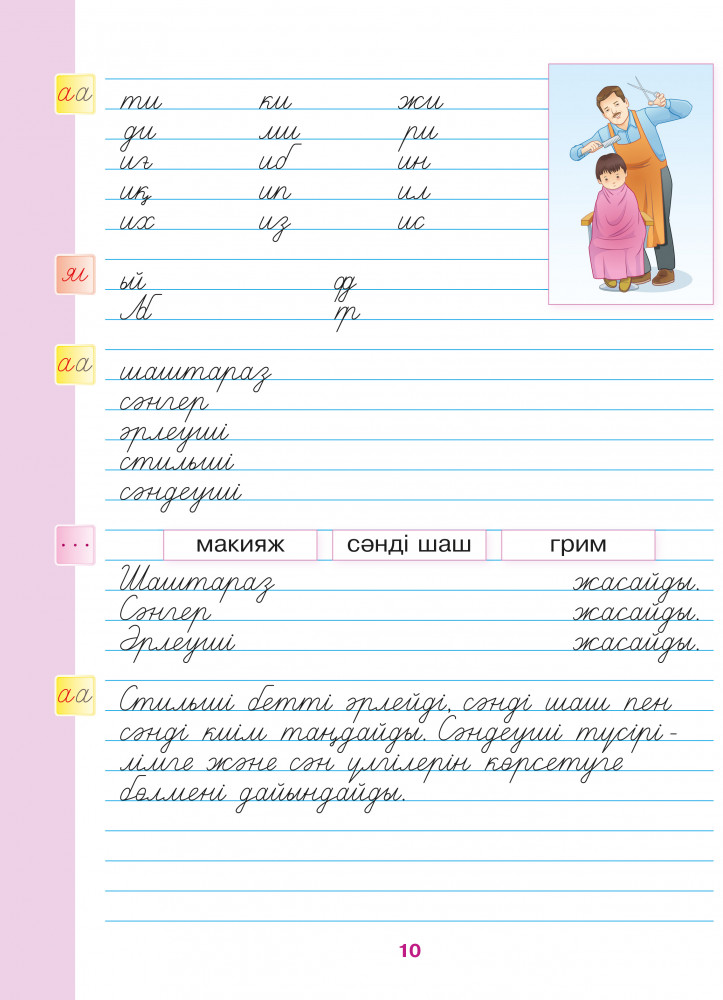 аа
ти ки жи
ди ми ри
иғ иб ин
иқ ип ил
их из ис
ӕ
ый фд
Аб тр
аа
шаштараз
сәнгер
әрлеуші
стильші
сәндеуші
... макияж сәнді шаш грим
Шаштараз жасайды.
Сәнгер жасайды.
Әрлеуші жасайды.
аа
Стильші бетті әрлейді, сәнді шаш пен
сәнді киім таңдайды. Сәндеуші түсірі-
лімге және сән үлгілерін көрсетуге
бөлмені дайындайды.
10